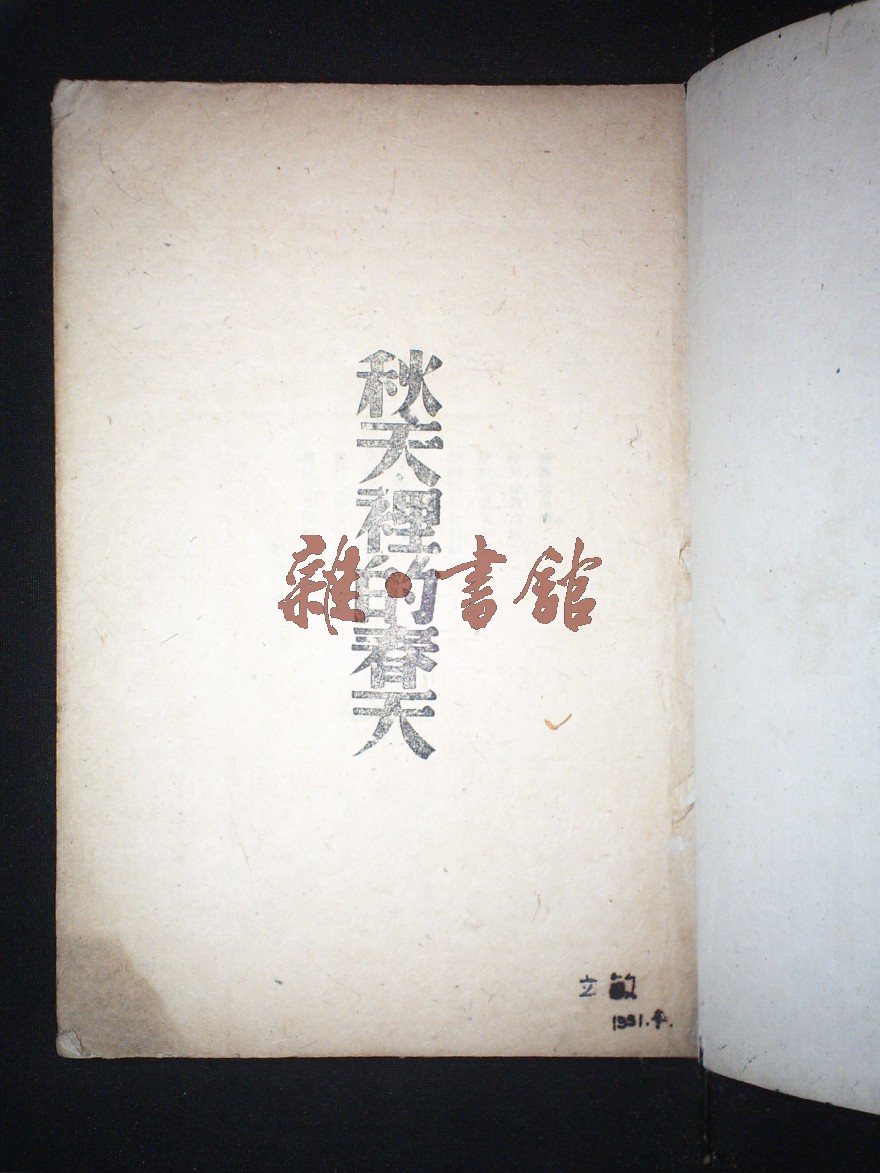 秋天裡的春天
雜·書館
立敏
1951.年.